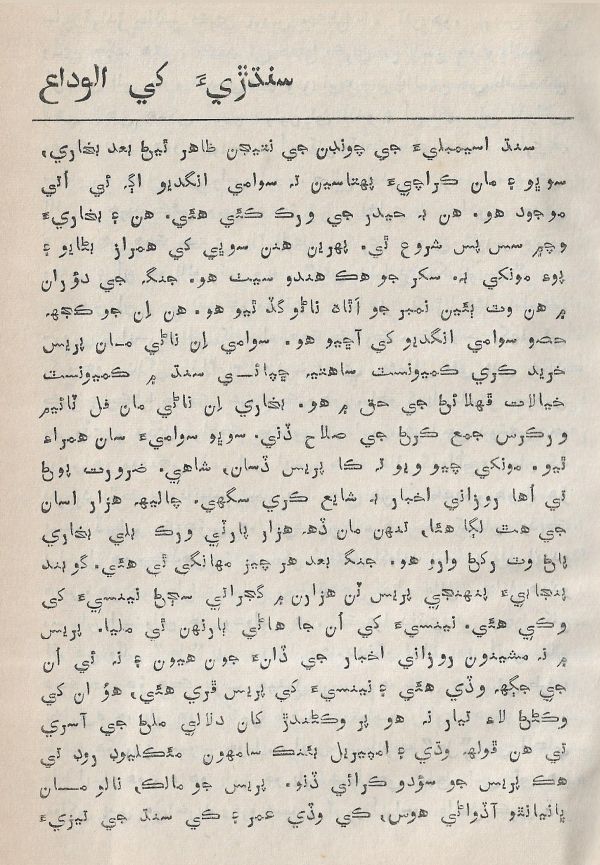 سنڌڙيءَ کي الوداع
سنڌ اسيمبليءَ جي چونڊن جي نتيجن ظاهر ٿيڻ بعد بخاري،
سوڀو ۽ مان ڪراچيءَ پهتاسين ته سوامي انگديو اڳ ئي اُتي
موجود هو. هن به حيدر جي ورڪ ڪئي هئي. هن ۽ بخاريءَ
وچ ۾ سس پس شروع ٿي. پهرين هنن سوڀي کي همراز بڻايو ۽
پوءِ مونکي به. سکر جو هڪ هندو سيٺ هو. جنگ جي دؤران
۾ هن وٽ ٻئين نمبر جو اَڻاهه ناڻو گڏ ٿيو هو. هن اِن جو ڪجهه
حصو سوامي انگديو کي آڇيو هو. سوامي اِن ناڻي مان پريس
خريد ڪري ڪميونسٽ ساهتيه ڇپائي سنڌ ۾ ڪميونسٽ
خيالات ڦهلائڻ جي حق ۾ هو. بخاري اِن ناڻي مان فل ٽائيم
ورڪرس جمع ڪرڻ جي صلاح ڏني. سوڀو سواميءَ سان همراءِ
ٿيو. مونکي چيو ويو ته ڪا پريس ڏسان، شاهي. ضرورت پوڻ
تي اُها روزاني اخبار به شايع ڪري سگهي. چاليهه هزار اسان
جي هٿ لڳا هئا، تنهن مان ڏهه هزار پارٽي ورڪ بلي بخاري
پاڻ وٽ رکڻ وارو هو. جنگ بعد هر چيز مهانگي ٿي هئي. گوبند
پنجابيءَ پنهنجي پريس ٽن هزارن ۾ گجراتي سڄڻ نينسيءَ کي
وڪي هئي. نينسيءَ کي اُن جا هاڻي ٻارنهن ٿي مليا. پريس
۾ نه مشينون روزاني اخبار جي ڏانءَ جون هيون ۽ نه ئي اُن
جي جڳهه وڏي هئي ۽ نينسيءَ کي پريس ڦري هئي، هؤ ان کي
وڪڻڻ لاءِ تيار نه هو پر وڪڻندڙ کان دلالي ملڻ جي آسري
تي هن ڦولهه وڌي ۽ امپيريل بئنڪ سامهون مئڪليوڊ روڊ تي
هڪ پريس جو سؤدو ڪرائي ڏنو. پريس جو مالڪ، نالو مان
ڀانيانٿو آڏواڻي هوس، کي وڏي عمر ۽ کي سنڌ جي تيزيءَ